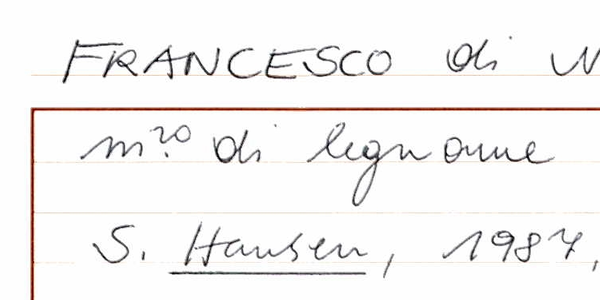 FRANCESCO di
m.ro di legname
S. Hansen, 1987,